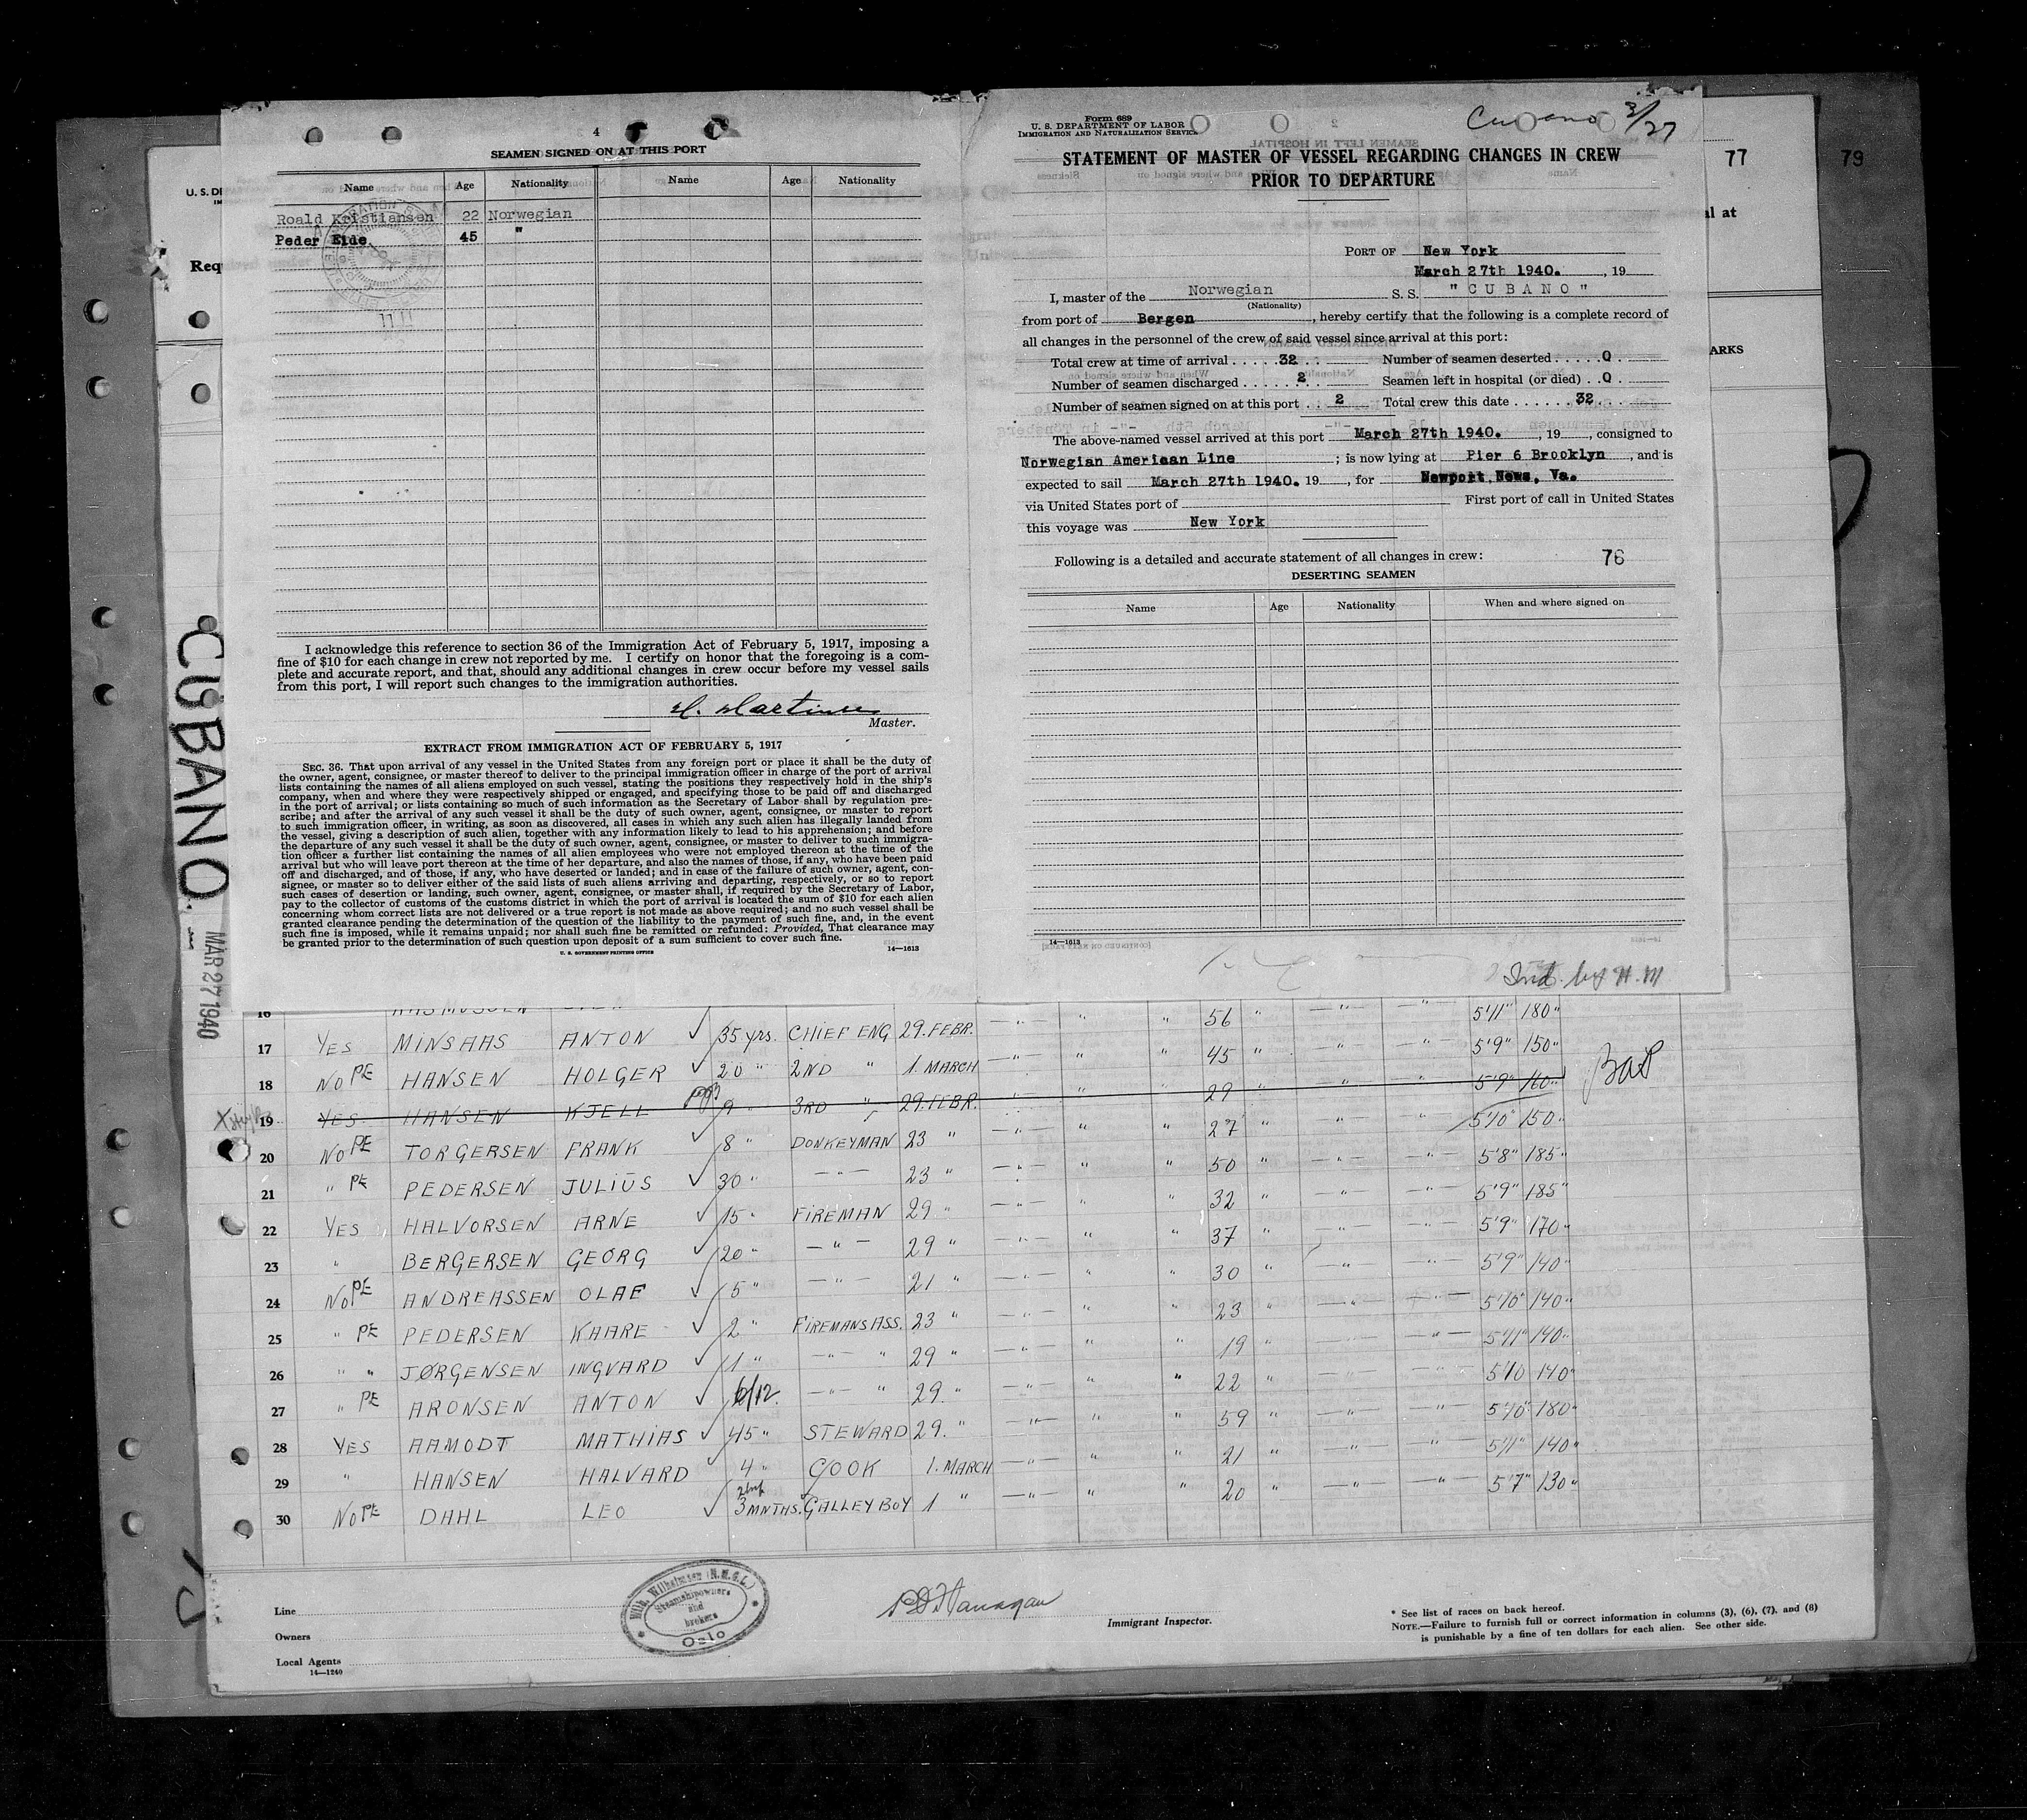 4
SEAMEN SIGNED ON AT THIS PORT
Name Age Nationality Name Age Nationality
Roald Kristiansen 22 Norwegian
Peder Eide 45 "
I acknowledge this reference to section 36 of the Immigration Act of February 5, 1917, imposing a
fine of $10 for each change in crew not reported by me. I certify on honor that the foregoing is a com-
plete and accurate report, and that, should any additional changes in crew occur before my vessel sails
from this port, I will report such changes to the immigration authorities.
Master.
EXTRACT FROM IMMIGRATION ACT OF FEBRUARY 5, 1917
SEC. 36. That upon arrival of any vessel in the United States from any foreign port or place it shall be the duty of
the owner, agent, consignee, or master thereof to deliver to the principal immigration officer in charge of the port of arrival
lists containing the names of all aliens employed on such vessel, stating the positions they respectively hold in the ship's
company, when and where they were respectively shipped or engaged, and specifying those to be paid off and discharged
in the port of arrival; or lists containing so much of such information as the Secretary of Labor shall by regulation pre-
scribe; and after the arrival of any such vessel it shall be the duty of such owner, agent, consignee, or master to report
to such immigration officer, in writing, as soon as discovered, all cases in which any such alien has illegally landed from
the vessel, giving a description of such alien, together with any information likely to lead to his apprehension; and before
the departure of any such vessel it shall be the duty of such owner, agent, consignee, or master to deliver to such immigra-
tion officer a further list containing the names of all alien employees who were not employed thereon at the time of the
arrival but who will leave port thereon at the time of her departure, and also the names of those, if any, who have been paid
off and discharged, and of those, if any, who have deserted or landed; and in case of the failure of such owner, agent, con-
signee, or master so to deliver either of the said lists of such aliens arriving and departing, respectively, or so to report
such cases of desertion or landing, such owner, agent, consignee, or master shall, if required by the Secretary of Labor,
pay to the collector of customs of the customs district in which the port of arrival is located the sum of $10 for each alien
concerning whom correct lists are not delivered or a true report is not made as above required; and no such vessel shall be
granted clearance pending the determination of the question of the liability to the payment of such fine, and, in the event
such fine is imposed, while it remains unpaid; nor shall such fine be remitted or refunded: Provided, That clearance may
be granted prior to the determination of such question upon deposit of a sum sufficient to cover such fine.
U. S. GOVERNMENT PRINTING OFFICE 14—1613
Form 689
U. S. DEPARTMENT OF LABOR
IMMIGRATION AND NATURALIZATION SERVICE
Cubano 3/27
STATEMENT OF MASTER OF VESSEL REGARDING CHANGES IN CREW
PRIOR TO DEPARTURE
PORT OF New York
March 27th 1940. , 19
I, master of the Norwegian S. S. " C U B A N O "
(Nationality)
from port of Bergen , hereby certify that the following is a complete record of
all changes in the personnel of the crew of said vessel since arrival at this port:
Total crew at time of arrival . . . . . 32 Number of seamen deserted . . . . . 0
Number of seamen discharged . . . . . 2 Seamen left in hospital (or died) . . 0
Number of seamen signed on at this port . . 2 Total crew this date . . . . . . 32
The above-named vessel arrived at this port March 27th 1940. , 19 , consigned to
Norwegian American Line ; is now lying at Pier 6 Brooklyn , and is
expected to sail March 27th 1940. 19 , for Newport News, Va.
via United States port of First port of call in United States
this voyage was New York
Following is a detailed and accurate statement of all changes in crew: 76
DESERTING SEAMEN
Name Age Nationality When and where signed on
14—1613
Ind. by H. M
77
79
U. S. DE
Req
al at
ARKS
CUBANO
MAR 27 1940
16 56 " —"— —"— 5'11" 180"
17 YES MINSAAS ANTON ✓ 35 yrs. CHIEF ENG 29. FEBR. —"— " " 45 " —"— —"— 5'9" 150"
18 NO PE HANSEN HOLGER ✓ 20 " 2ND " 1. MARCH —"— " " 29 " " " 5'9" 160"
19 YES HANSEN KJELL 9 " 3RD " 29. FEBR. " " " 27 " —"— —"— 5'10" 150"
20 NO PE TORGERSEN FRANK ✓ 8 " DONKEYMAN 23 " —"— " " 50 " —"— —"— 5'8" 185"
21 " PE PEDERSEN JULIUS ✓ 30 " —"— 23 " —"— " " 32 " —"— —"— 5'9" 185"
22 YES HALVORSEN ARNE ✓ 15 " FIREMAN 29 " —"— " " 37 " —"— —"— 5'9" 170"
23 " BERGERSEN GEORG ✓ 20 " —"— 29 " —"— " " 30 " —"— —"— 5'9" 140"
24 NO PE ANDREASSEN OLAF ✓ 5 " —"— 21 " —"— " " 23 " —"— —"— 5'10" 140"
25 " PE PEDERSEN KAARE ✓ 2 " FIREMANS ASS. 23 " —"— " " 19 " —"— —"— 5'11" 140"
26 " " JØRGENSEN INGVARD ✓ 1 " —"— " 29 " —"— " " 22 " —"— —"— 5'10 140"
27 " PE ARONSEN ANTON ✓ 6/12. —"— " 29. " —"— " " 59 " —"— —"— 5'10" 180"
28 YES AAMODT MATHIAS ✓ 45 " STEWARD 29. " —"— " " 21 " —"— —"— 5'11" 140"
29 " HANSEN HALVARD ✓ 4 " COOK 1. MARCH —"— " " 20 " —"— —"— 5'7" 130"
30 NO PE DAHL LEO ✓ 3 MNTHS. GALLEY BOY 1 " —"— "
Line
Owners
Local Agents
14—1240
Wilh. Wilhelmsen (N.M.G.L.)
Steamshipowners
and
brokers
Oslo
Immigrant Inspector.
* See list of races on back hereof.
NOTE.—Failure to furnish full or correct information in columns (3), (6), (7), and (8)
is punishable by a fine of ten dollars for each alien. See other side.